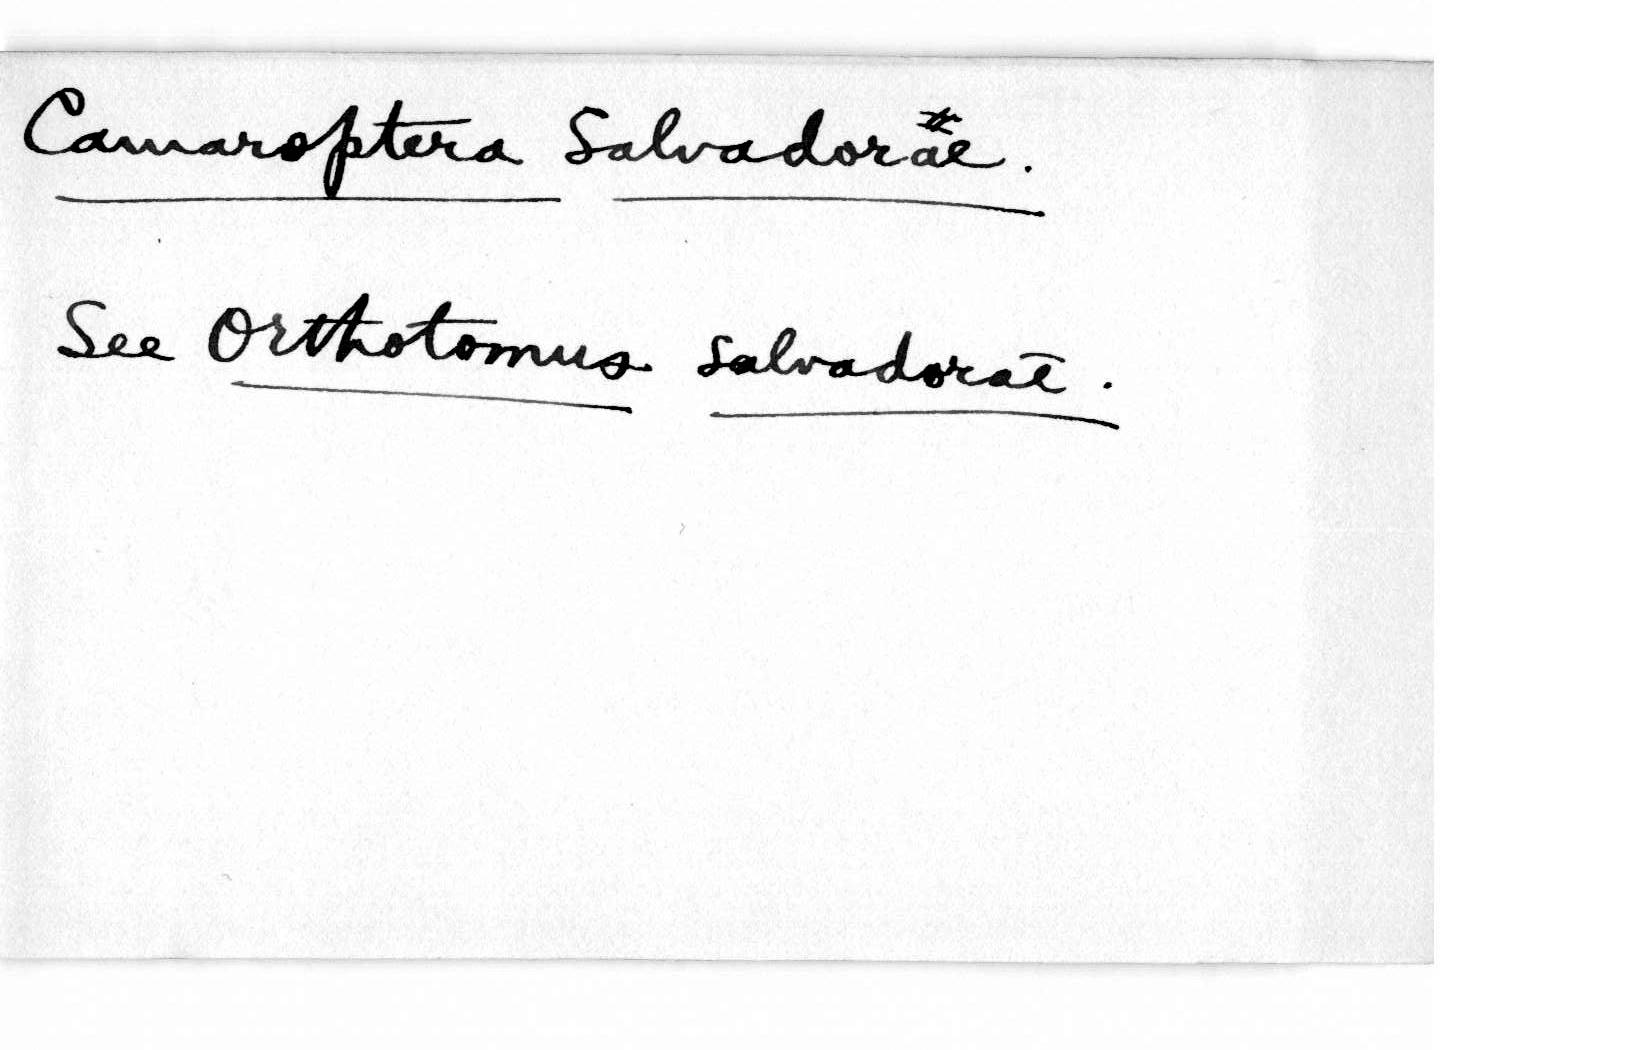 Camaroptera Salvadorae.
See Orthotomus salvadorae.